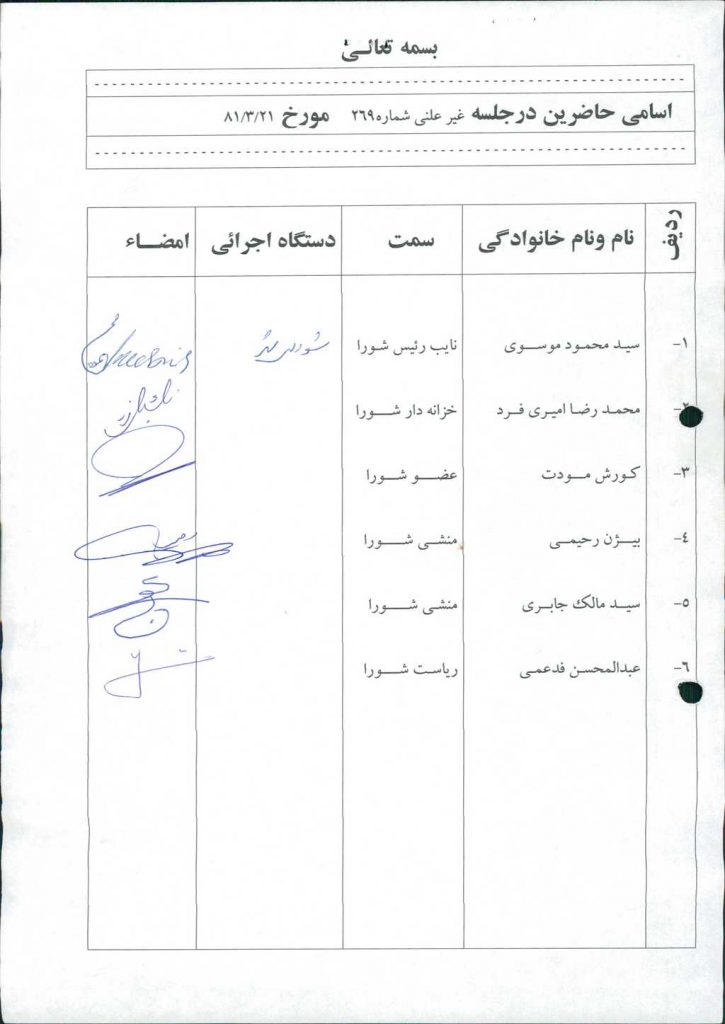 بسمه تعالی
اسامی حاضرین درجلسه غیر علنی شماره ۲۶۹ مورخ ۸۱/۳/۲۱
ردیف نام ونام خانوادگی سمت دستگاه اجرائی امضاء
۱- سید محمود موسوی نایب رئیس شورا شورای شهر
۲- محمد رضا امیری فرد خزانه دار شورا
۳- کورش مودت عضو شورا
۴- بیژن رحیمی منشی شورا
۵- سید مالک جابری منشی شورا
۶- عبدالمحسن فدعمی ریاست شورا